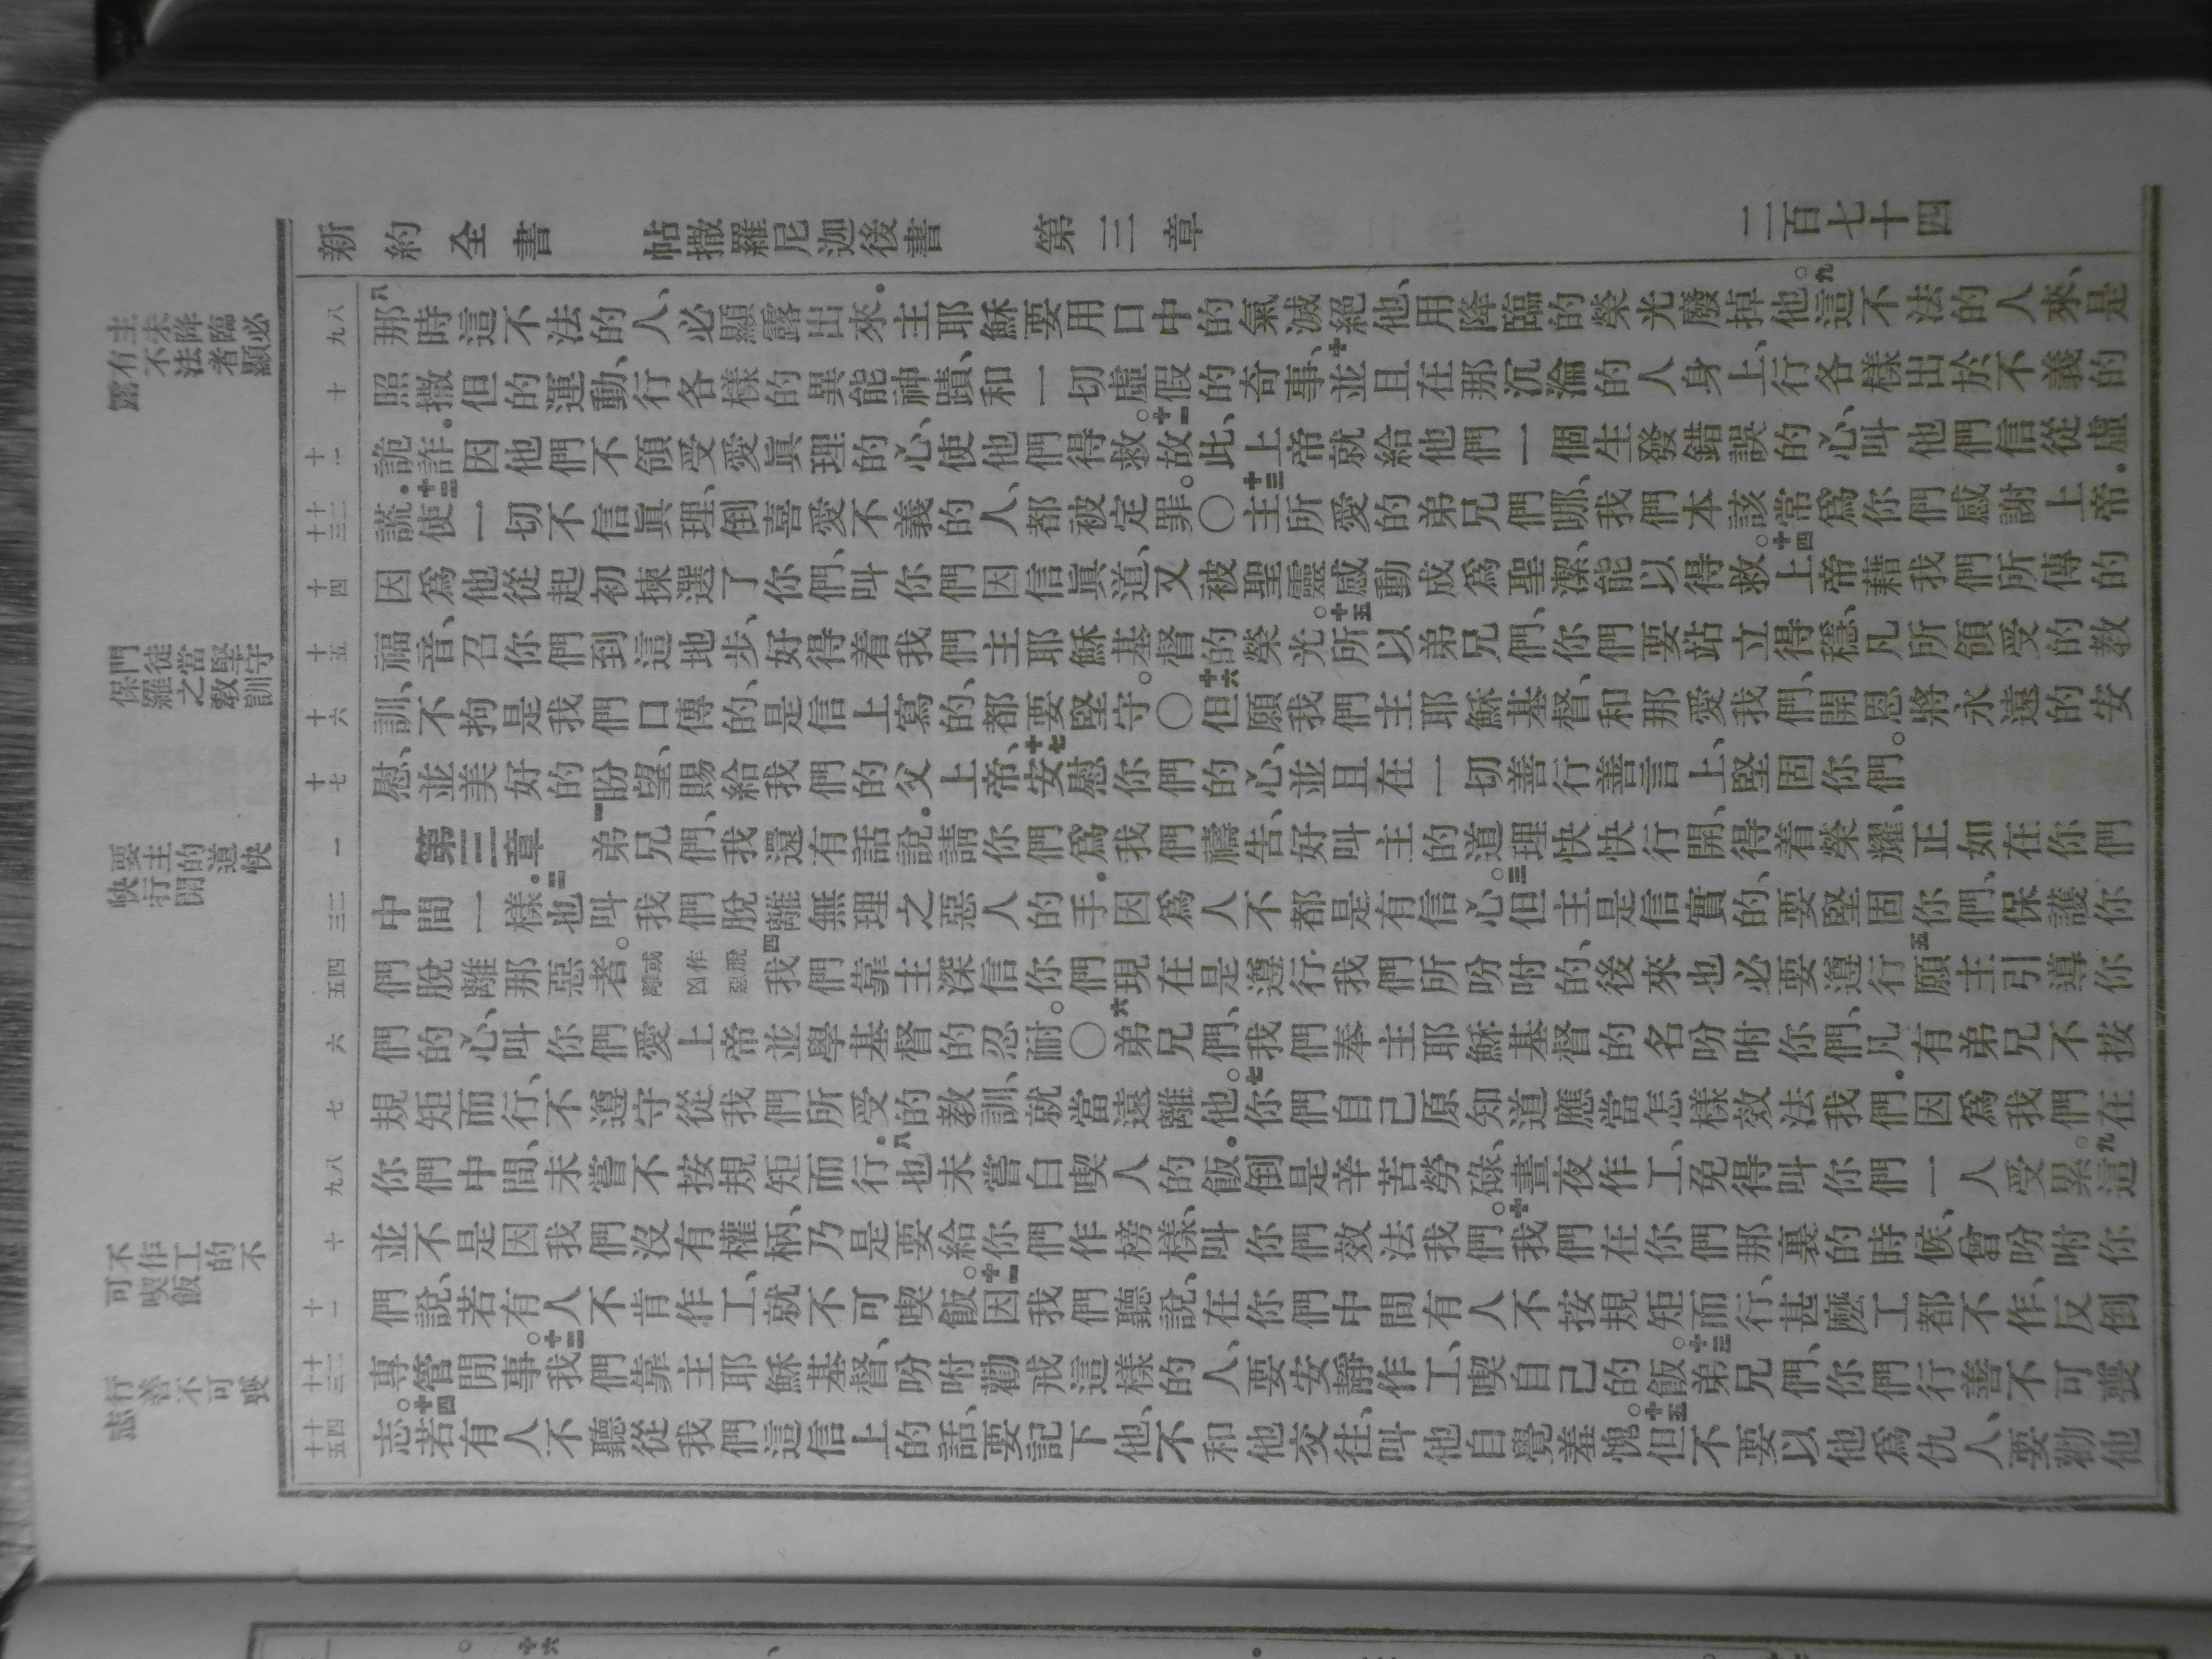 新約全書 帖撒羅尼迦後書 第三章 二百七十四
主未降臨必
有不法者顯
露
門徒當堅守
保羅之教訓
要主的道快
快行開
不作工的不
可喫飯
行善不可喪
志
八九
十
十一
十二十三
十四
十五
十六
十七
一
二三
四五
六
七
八九
十
十一
十二十三
十四十五
八那時這不法的人、必顯露出來.主耶穌要用口中的氣滅絕他、用降臨的榮光廢掉他。九這不法的人來、是
照撒但的運動、行各樣的異能神蹟、和一切虛假的奇事、十並且在那沉淪的人身上、行各樣出於不義的
詭詐.因他們不領受愛眞理的心、使他們得救。十一故此、上帝就給他們一個生發錯誤的心、叫他們信從虛
謊.十二使一切不信眞理、倒喜愛不義的人、都被定罪。〇十三主所愛的弟兄們哪、我們本該常爲你們感謝上帝.
因爲他從起初揀選了你們、叫你們因信眞道、又被聖靈感動成爲聖潔、能以得救。十四上帝藉我們所傳的
福音、召你們到這地步、好得着我們主耶穌基督的榮光。十五所以弟兄們、你們要站立得穩、凡所領受的教
訓、不拘是我們口傳的、是信上寫的、都要堅守。〇十六但願我們主耶穌基督、和那愛我們、開恩將永遠的安
慰、並美好的盼望、賜給我們的父上帝、十七安慰你們的心、並且在一切善行善言上、堅固你們。
第三章 一弟兄們、我還有話說.請你們爲我們禱告、好叫主的道理快快行開、得着榮耀、正如在你們
中間一樣.二也叫我們脫離無理之惡人的手.因爲人不都是有信心。三但主是信實的、要堅固你們、保護你
們脫離那惡者。或作脫離凶惡四我們靠主深信你們現在是遵行我們所吩咐的、後來也必要遵行五願主引導你
們的心、叫你們愛上帝並學基督的忍耐。〇六弟兄們、我們奉主耶穌基督的名吩咐你們、凡有弟兄不按
規矩而行、不遵守從我們所受的教訓、就當遠離他。七你們自己原知道應當怎樣效法我們.因爲我們在
你們中間、未嘗不按規矩而行.八也未嘗白喫人的飯.倒是辛苦勞碌、晝夜作工、免得叫你們一人受累。九這
並不是因我們沒有權柄、乃是要給你們作榜樣、叫你們效法我們。十我們在你們那裏的時候、曾吩咐你
們說、若有人不肯作工、就不可喫飯。十一因我們聽說、在你們中間有人不按規矩而行、甚麼工都不作、反倒
專管閒事。十二我們靠主耶穌基督、吩咐勸戒這樣的人、要安靜作工、喫自己的飯。十三弟兄們、你們行善不可喪
志。十四若有人不聽從我們這信上的話、要記下他、不和他交往、叫他自覺羞愧。十五但不要以他爲仇人、要勸他